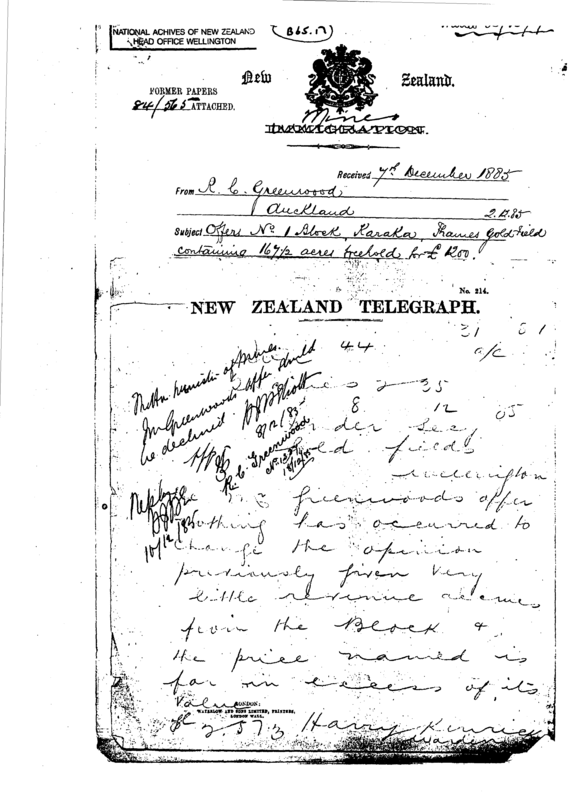 NATIONAL ACHIVES OF NEW ZEALAND
HEAD OFFICE WELLINGTON
(B65.17)
New Zealand.
FORMER PAPERS
84/565 ATTACHED.
Mines
IMMIGRATION.
Received 7th December 1885
From R. C. Greenwood,
Auckland 2.12.85
Subject Offers No 1 Block, Karaka, Thames Gold-Field
containing 167 1/2 acres freehold for £1200.
No. 214.
NEW ZEALAND TELEGRAPH.
44
a/c
2 35
8 12 85
Under Sec
Gold fields
Wellington
Greenwoods offer
Nothing has occurred to
Change the opinion
previously given Very
little revenue
from the Block &
the price named is
far in excess of its
Value
Harry Kenrick
Warden
The Hon Minister of Mines.
Mr Greenwoods offer should
be declined
8/12/85
R. C. Greenwood
10/12/85
LONDON:
WATERLOW AND SONS LIMITED, PRINTERS,
LONDON WALL.